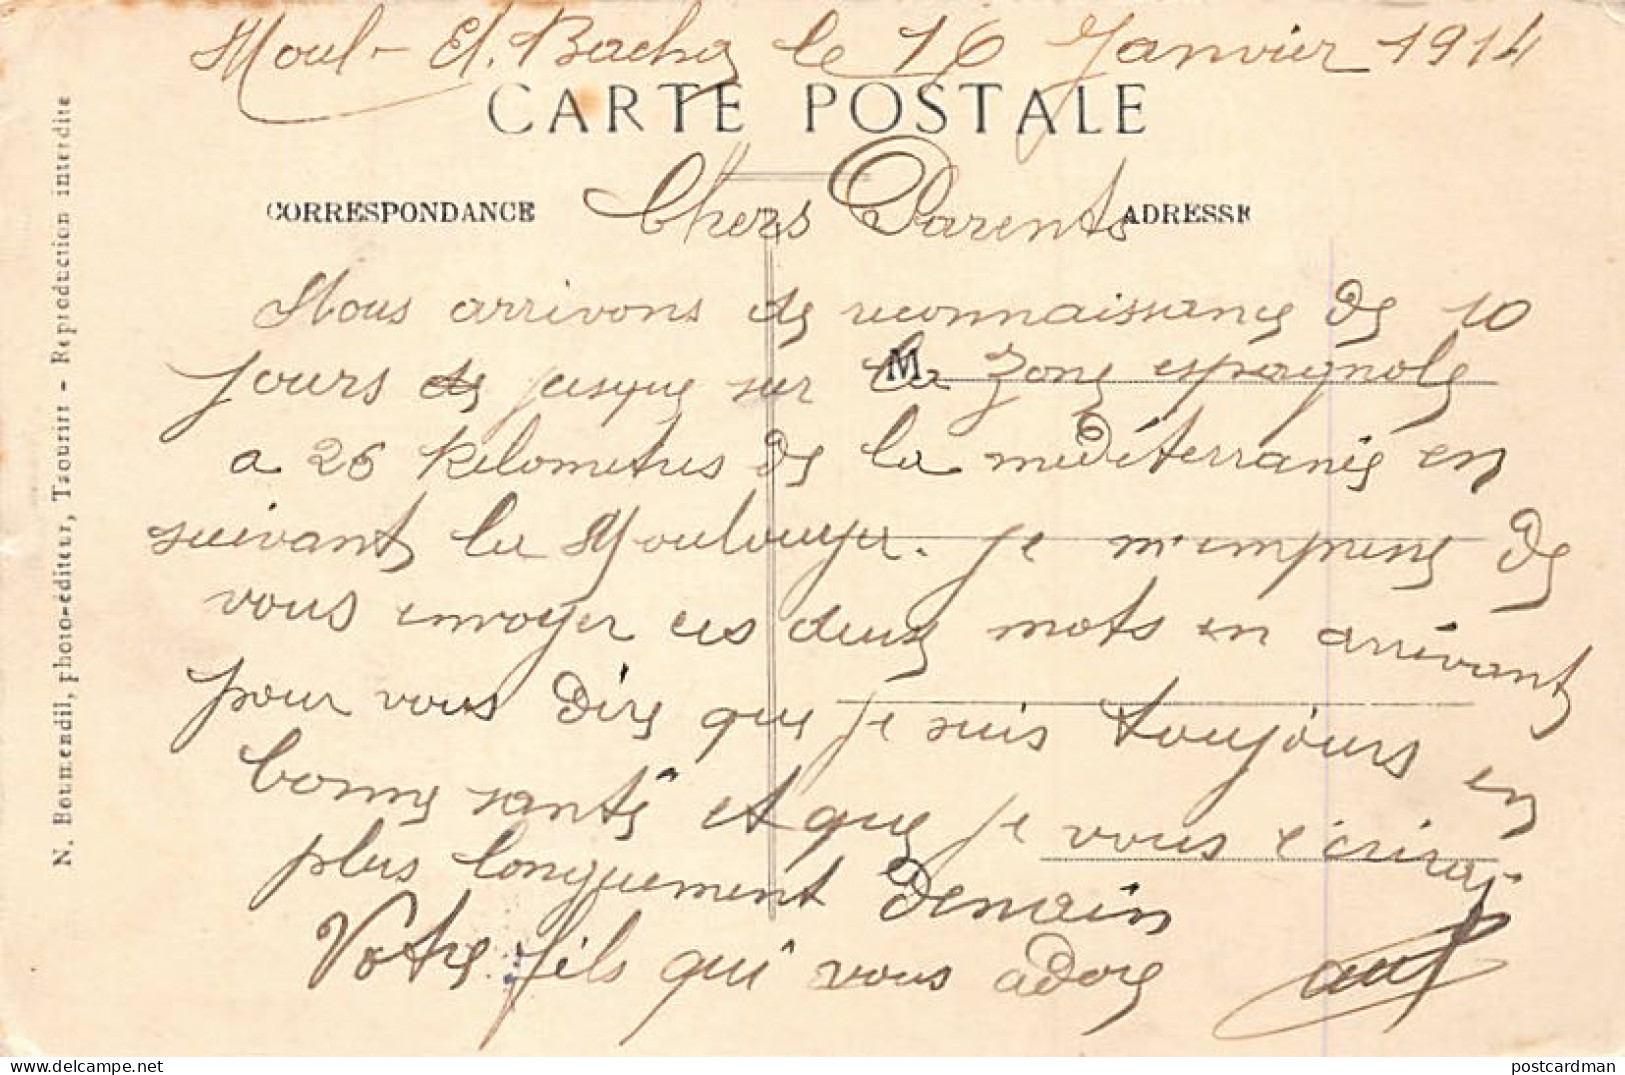 Moul-El. Bacha le 16 Janvier 1914
CARTE POSTALE
CORRESPONDANCE
Chers Parents
ADRESSE
Nous arrivons de reconnaissance de 10
jours de jusque sur la zone espagnole
M
a 26 kilometres de la méditerranie en
suivant la Moulouya. je m'emprese de
vous envoyer ces deux mots en arrivant
pour vous dire que je suis toujours en
bonne santé et que je vous écrirai
plus longuement demain
Votre fils qui vous adore
N. Boumendil, photo-éditeur, Taourirt - Reproduction interdite
postcardman